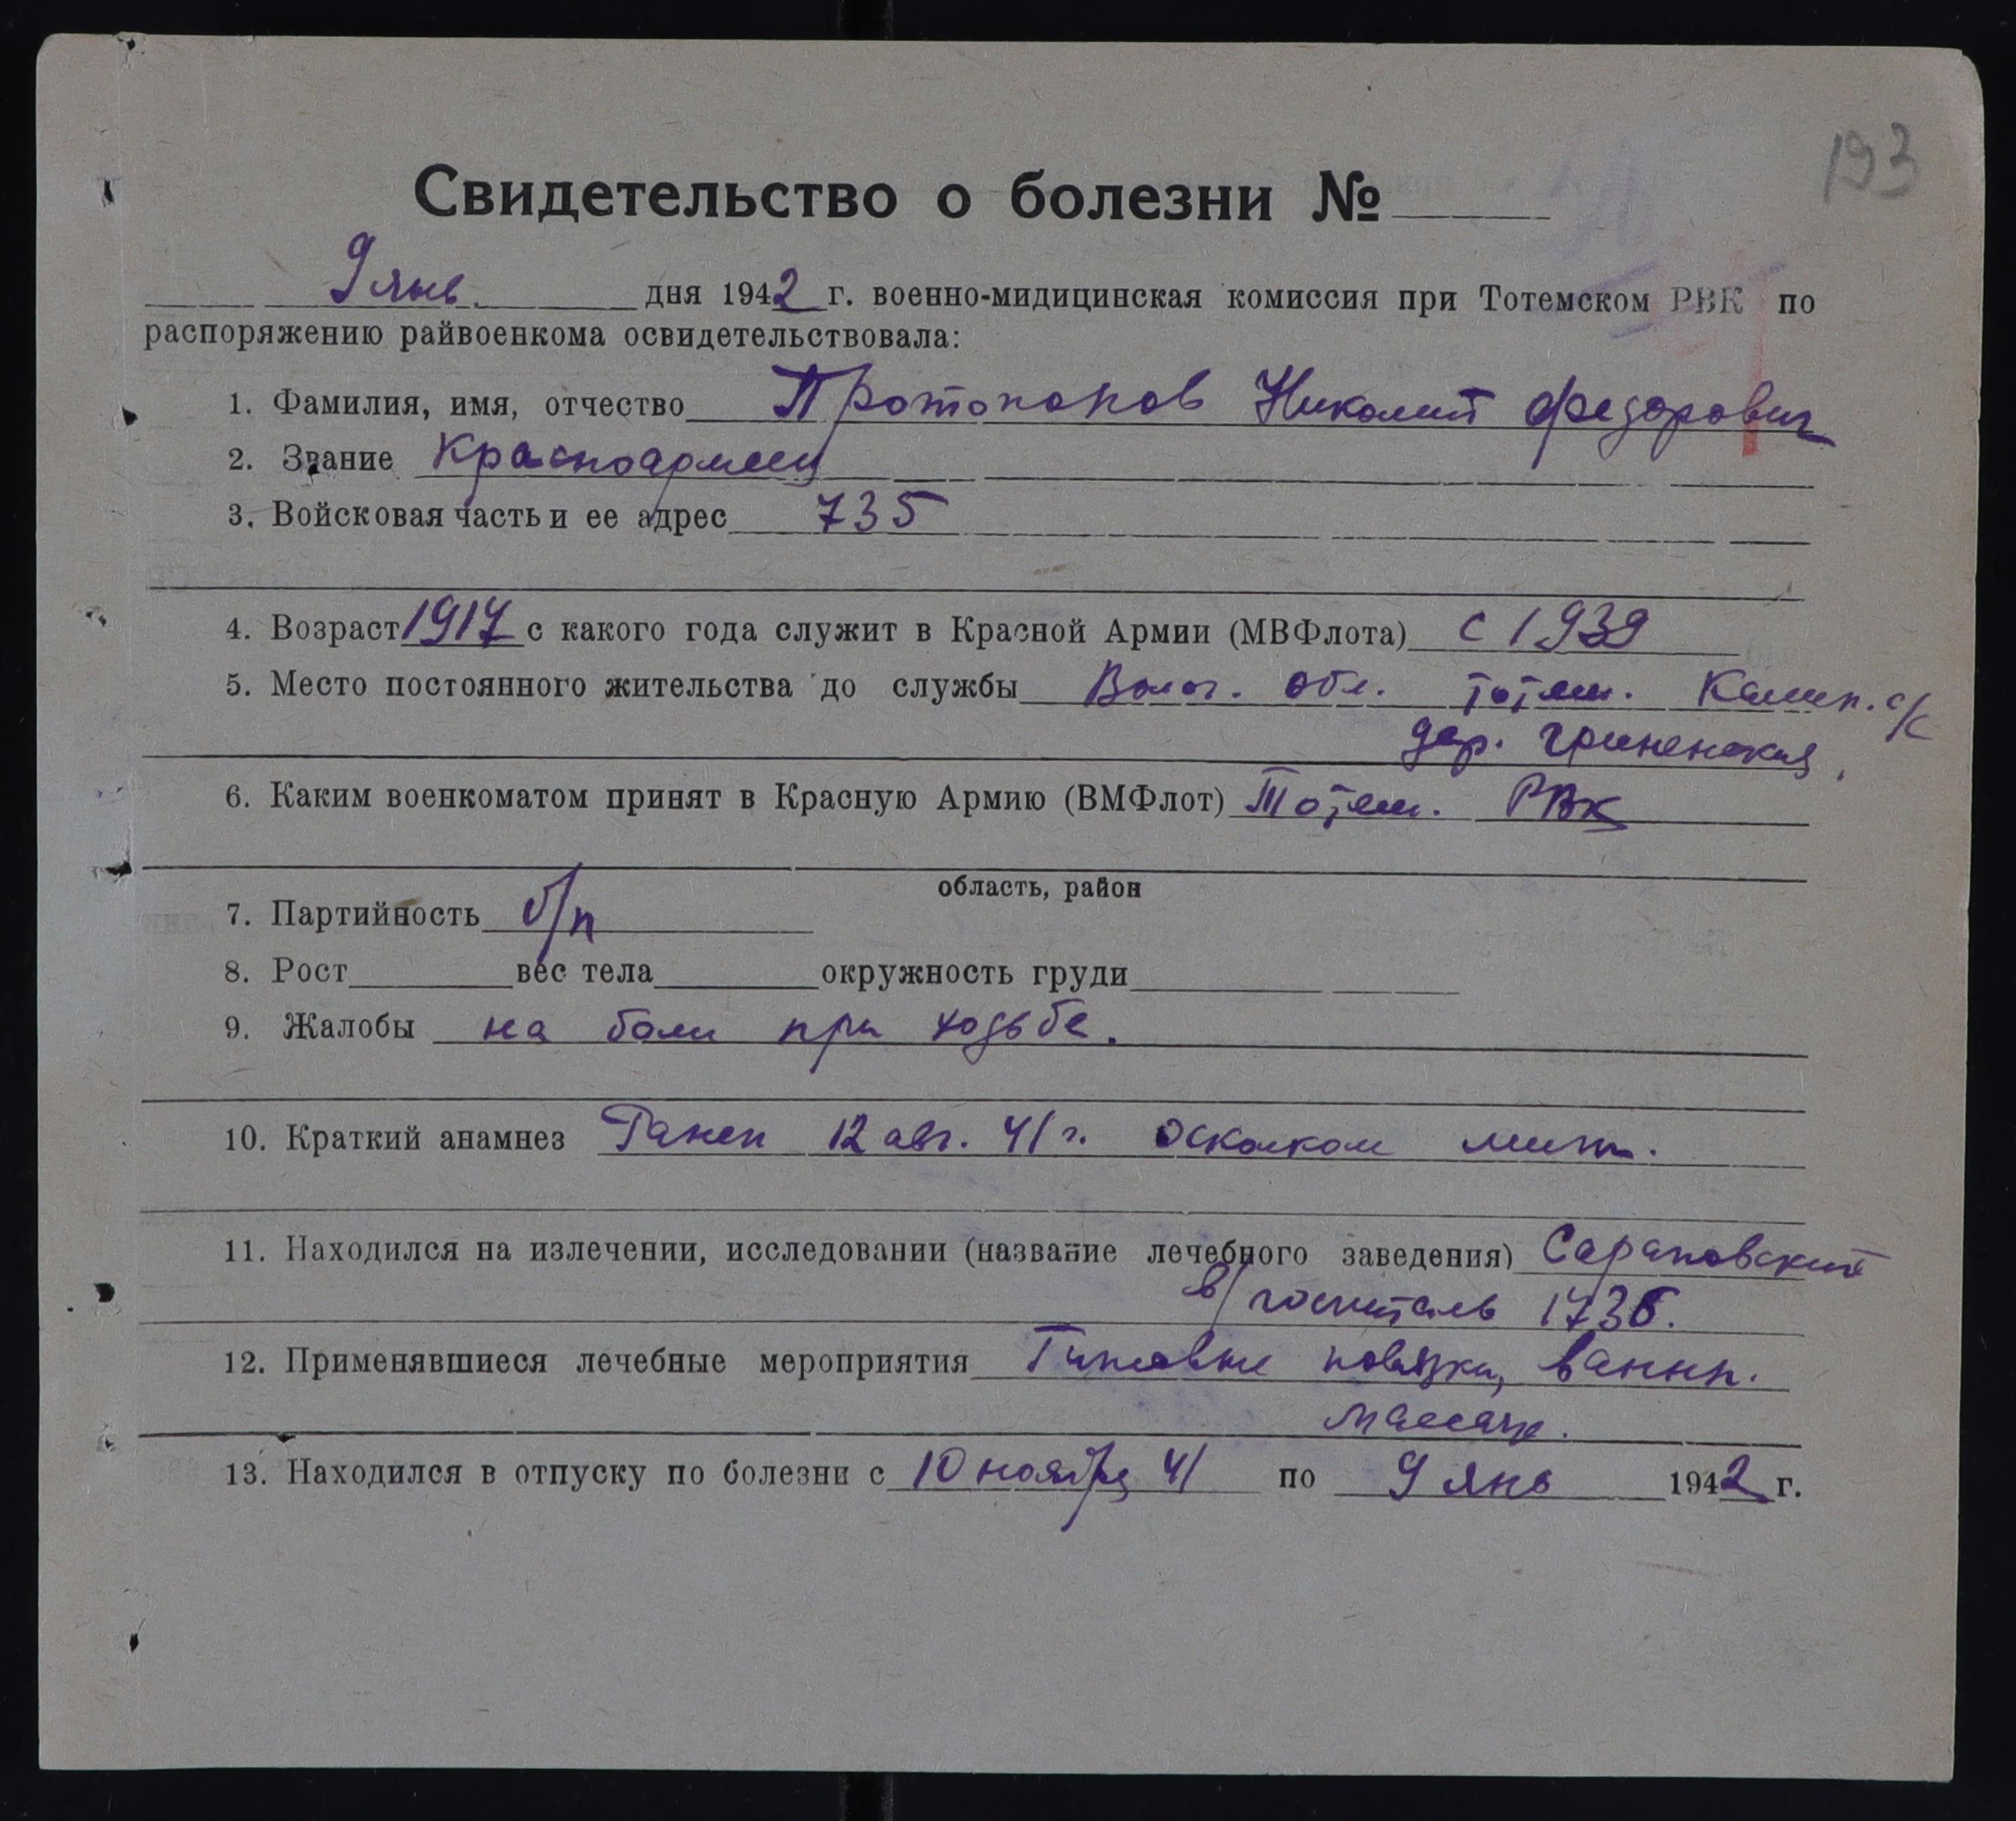 193
Свидетельство о болезни №
9 янв. дня 1942 г. военно-мидицинская комиссия при Тотемском РВК по
распоряжению райвоенкома освидетельствовала:
1. Фамилия, имя, отчество Протопопов Николай Федорович
2. Звание Красноармеец
3. Войсковая часть и ее адрес 735
4. Возраст 1917 с какого года служит в Красной Армии (МВФлота) с 1939
5. Место постоянного жительства до службы Волог. обл. Тотем. Калин. с/с
дер. Гриненская,
6. Каким военкоматом принят в Красную Армию (ВМФлот) Тотем. РВК
область, район
7. Партийность б/п
8. Рост вес тела окружность груди
9. Жалобы на боли при ходьбе.
10. Краткий анамнез Ранен 12 авг. 41 г. осколком мины.
11. Находился на излечении, исследовании (название лечебного заведения) Сараповский
в/госпиталь 1735.
12. Применявшиеся лечебные мероприятия Гипсовые повязки, ванны.
массаж.
13. Находился в отпуску по болезни с 10 ноября 41 по 9 янв 1942 г.